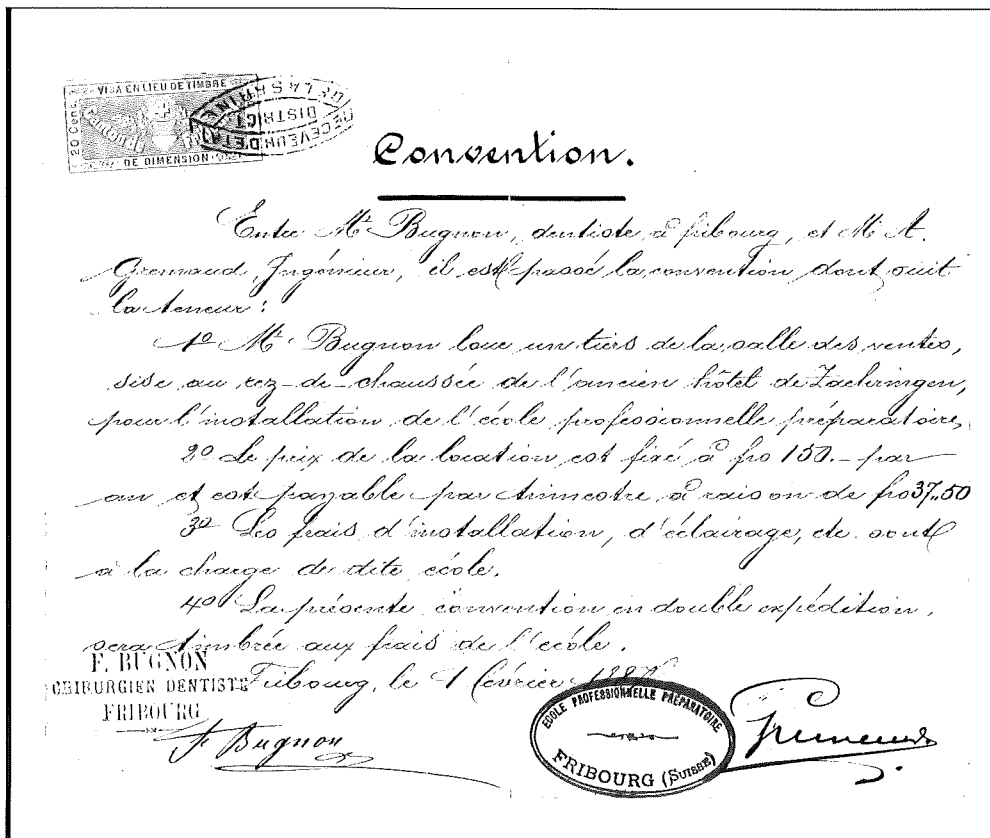 VISA EN LIEU DE TIMBRE
20 Cent.
Canton de
DE DIMENSION
RECEVEUR D'ÉTAT
DISTRICT
DE LA SARINE
Convention.
Entre Mr Bugnon, dentiste à fribourg, et Mr A.
Gremaud, Ingénieur, il est passé la convention dont suit
la teneur :
1º Mr Bugnon loue un tiers de la salle des ventes,
sise au rez-de-chaussée de l'ancien hôtel de Zaehringen,
pour l'installation de l'école professionnelle préparatoire,
2º Le prix de la location est fixé à frs 150.- par
an et est payable par trimestre, à raison de frs 37.50
3º Les frais d'installation, d'éclairage, etc. sont
à la charge de dite école.
4º La présente convention en double expédition,
sera timbrée aux frais de l'école.
Fribourg, le 1 février
F. BUGNON
CHIRURGIEN DENTISTE
FRIBOURG
F. Bugnon
ECOLE PROFESSIONNELLE PRÉPARATOIRE
FRIBOURG (SUISSE)
Gremaud